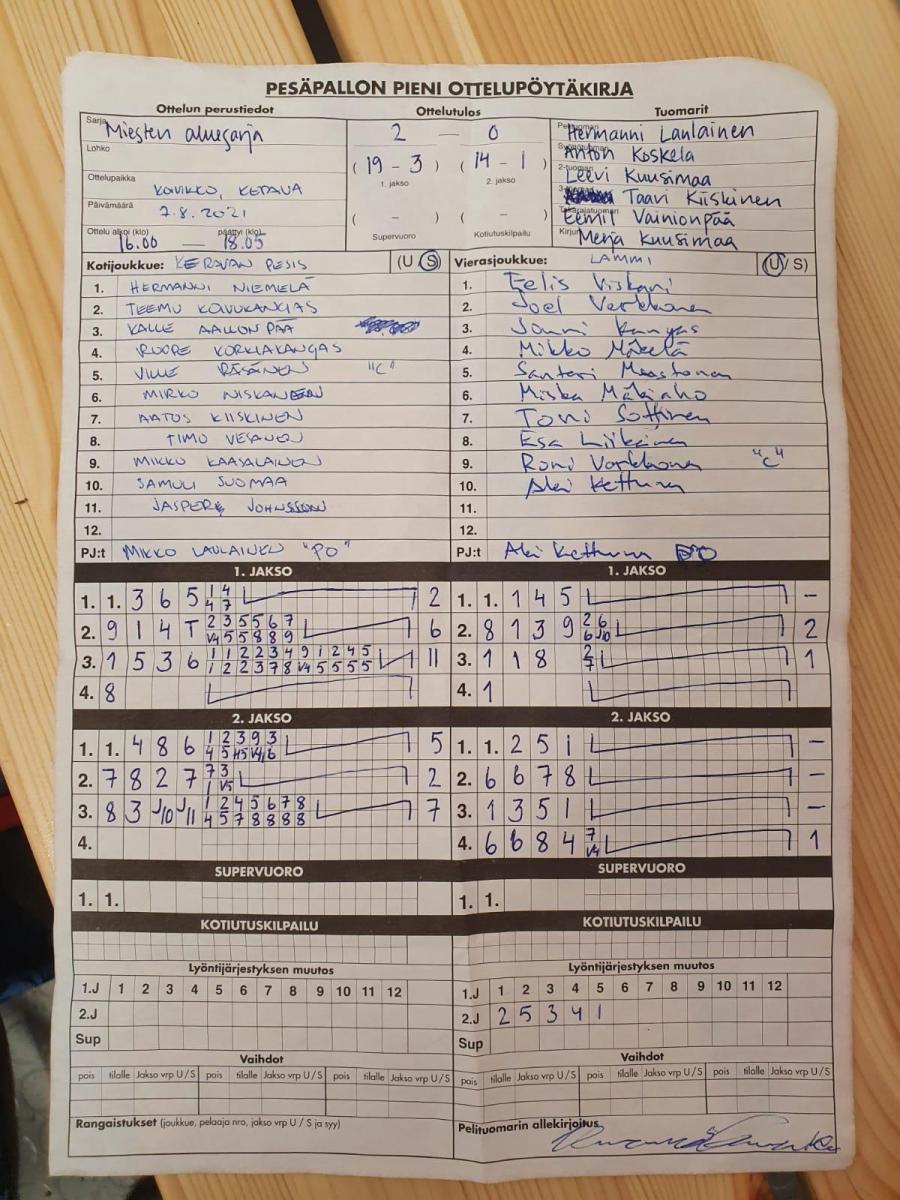 PESÄPALLON PIENI OTTELUPÖYTÄKIRJA
Ottelun perustiedot Ottelutulos Tuomarit
Sarja Miesten aluesarja 2 — 0 Hermanni Laulainen
Lohko (19 - 3) (14 - 1) Anton Koskela
1. jakso 2. jakso Leevi Kuusimaa
Ottelupaikka KOIVIKKO, KERAVA Taavi Kiiskinen
Päivämäärä 7.8.2021 ( - ) ( - ) Eemil Vainionpää
Ottelu alkoi (klo) päättyi (klo) 16.00 — 18.05 Supervuoro Kotiutuskilpailu Merja Kuusimaa
Kotijoukkue: KERAVAN PESIS (U S) Vierasjoukkue: LAMMI (U/S)
1. HERMANNI NIEMELÄ 1. Eelis
2. TEEMU KOVUKANGAS 2. Joel Verkkonen
3. KALLE AALLONPÄÄ 3. Jonni Kangas
4. ROOPE KORKIAKANGAS 4. Mikko Mäkelä
5. VILLE RÄSÄNEN "C" 5. Santeri
6. MIRKO NISKANEN 6. Miska Mäkiaho
7. AATOS KIISKINEN 7. Toni Sottinen
8. TIMO VESANEN 8. Esa Liikainen
9. MIKKO KAASALAINEN 9. Roni Verkkonen "C"
10. SAMULI SUOMAA 10. Aki Kettunen
11. JASPER JOHNSSON 11.
12. 12.
PJ:t MIKKO LAULAINEN "PO" PJ:t Aki Kettunen
1. JAKSO 1. JAKSO
1. 1. 3 6 5 1 4 2 1. 1. 1 4 5 –
4 7
2. 9 1 4 T 2 3 5 5 6 7 6 2. 8 1 3 9 2 6 2
V4 5 5 8 8 9 6 J10
3. 1 5 3 6 1 1 2 2 3 4 9 1 2 4 5 11 3. 1 1 8 2 1
1 2 2 3 7 8 V4 5 5 5 5 7
4. 8 4. 1
2. JAKSO 2. JAKSO
1. 1. 4 8 6 1 2 3 9 3 5 1. 1. 2 5 1 –
2. 7 8 2 7 7 3 2 2. 6 6 7 8 –
1 V5
3. 8 3 J10 J11 1 2 4 5 6 7 8 7 3. 1 3 5 1 –
4 5 7 8 8 8 8
4. 4. 6 6 8 4 7 1
V4
SUPERVUORO SUPERVUORO
1. 1. 1. 1.
KOTIUTUSKILPAILU KOTIUTUSKILPAILU
Lyöntijärjestyksen muutos Lyöntijärjestyksen muutos
1.J 1 2 3 4 5 6 7 8 9 10 11 12 1.J 1 2 3 4 5 6 7 8 9 10 11 12
2.J 2.J 2 5 3 4 1
Sup Sup
Vaihdot Vaihdot
pois tilalle Jakso vrp U/S pois tilalle Jakso vrp U/S pois tilalle Jakso vrp U/S pois tilalle Jakso vrp U/S pois tilalle Jakso vrp U/S pois tilalle Jakso vrp U/S
Rangaistukset (joukkue, pelaaja nro, jakso vrp U/S ja syy) Pelituomarin allekirjoitus